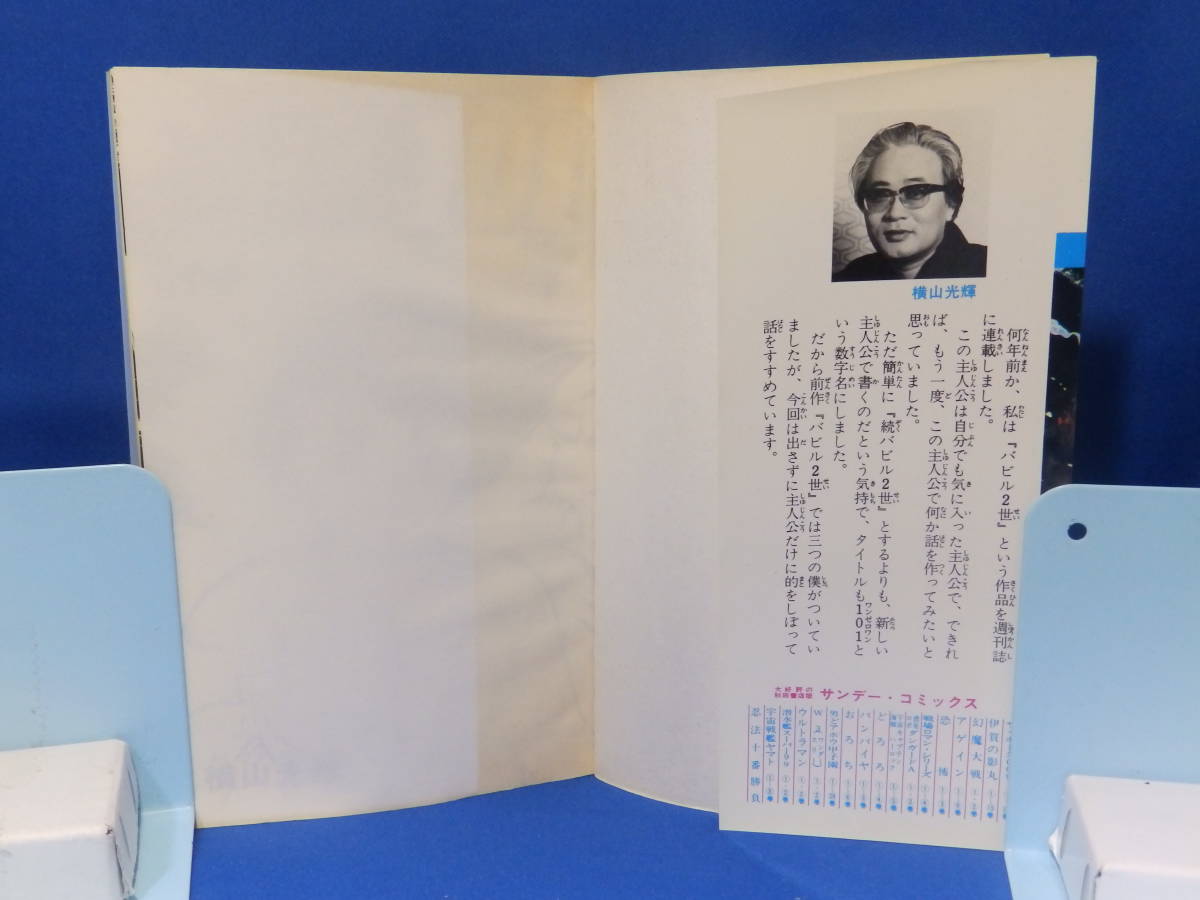 横山光輝
何年前か、私は『バビル2世』という作品を週刊誌
に連載しました。
この主人公は自分でも気に入った主人公で、できれ
ば、もう一度、この主人公で何か話を作ってみたいと
思っていました。
ただ簡単に『続バビル2世』とするよりも、新しい
主人公で書くのだという気持で、タイトルも101と
いう数字名にしました。
だから前作『バビル2世』では三つの僕がついてい
ましたが、今回は出さずに主人公だけに的をしぼって
話をすすめています。
大好評の
秋田書店版
サンデー・コミックス
伊賀の影丸
幻魔大戦
アゲイン
恐怖
戦場ロマン・シリーズ
惑星ロボダンガードA
宇宙海賊キャプテンハーロック
どろろ
バンパイヤ
おろち
男どアホウ甲子園
W3
ウルトラマン
潜水艦スーパー99
宇宙戦艦ヤマト
忍法十番勝負